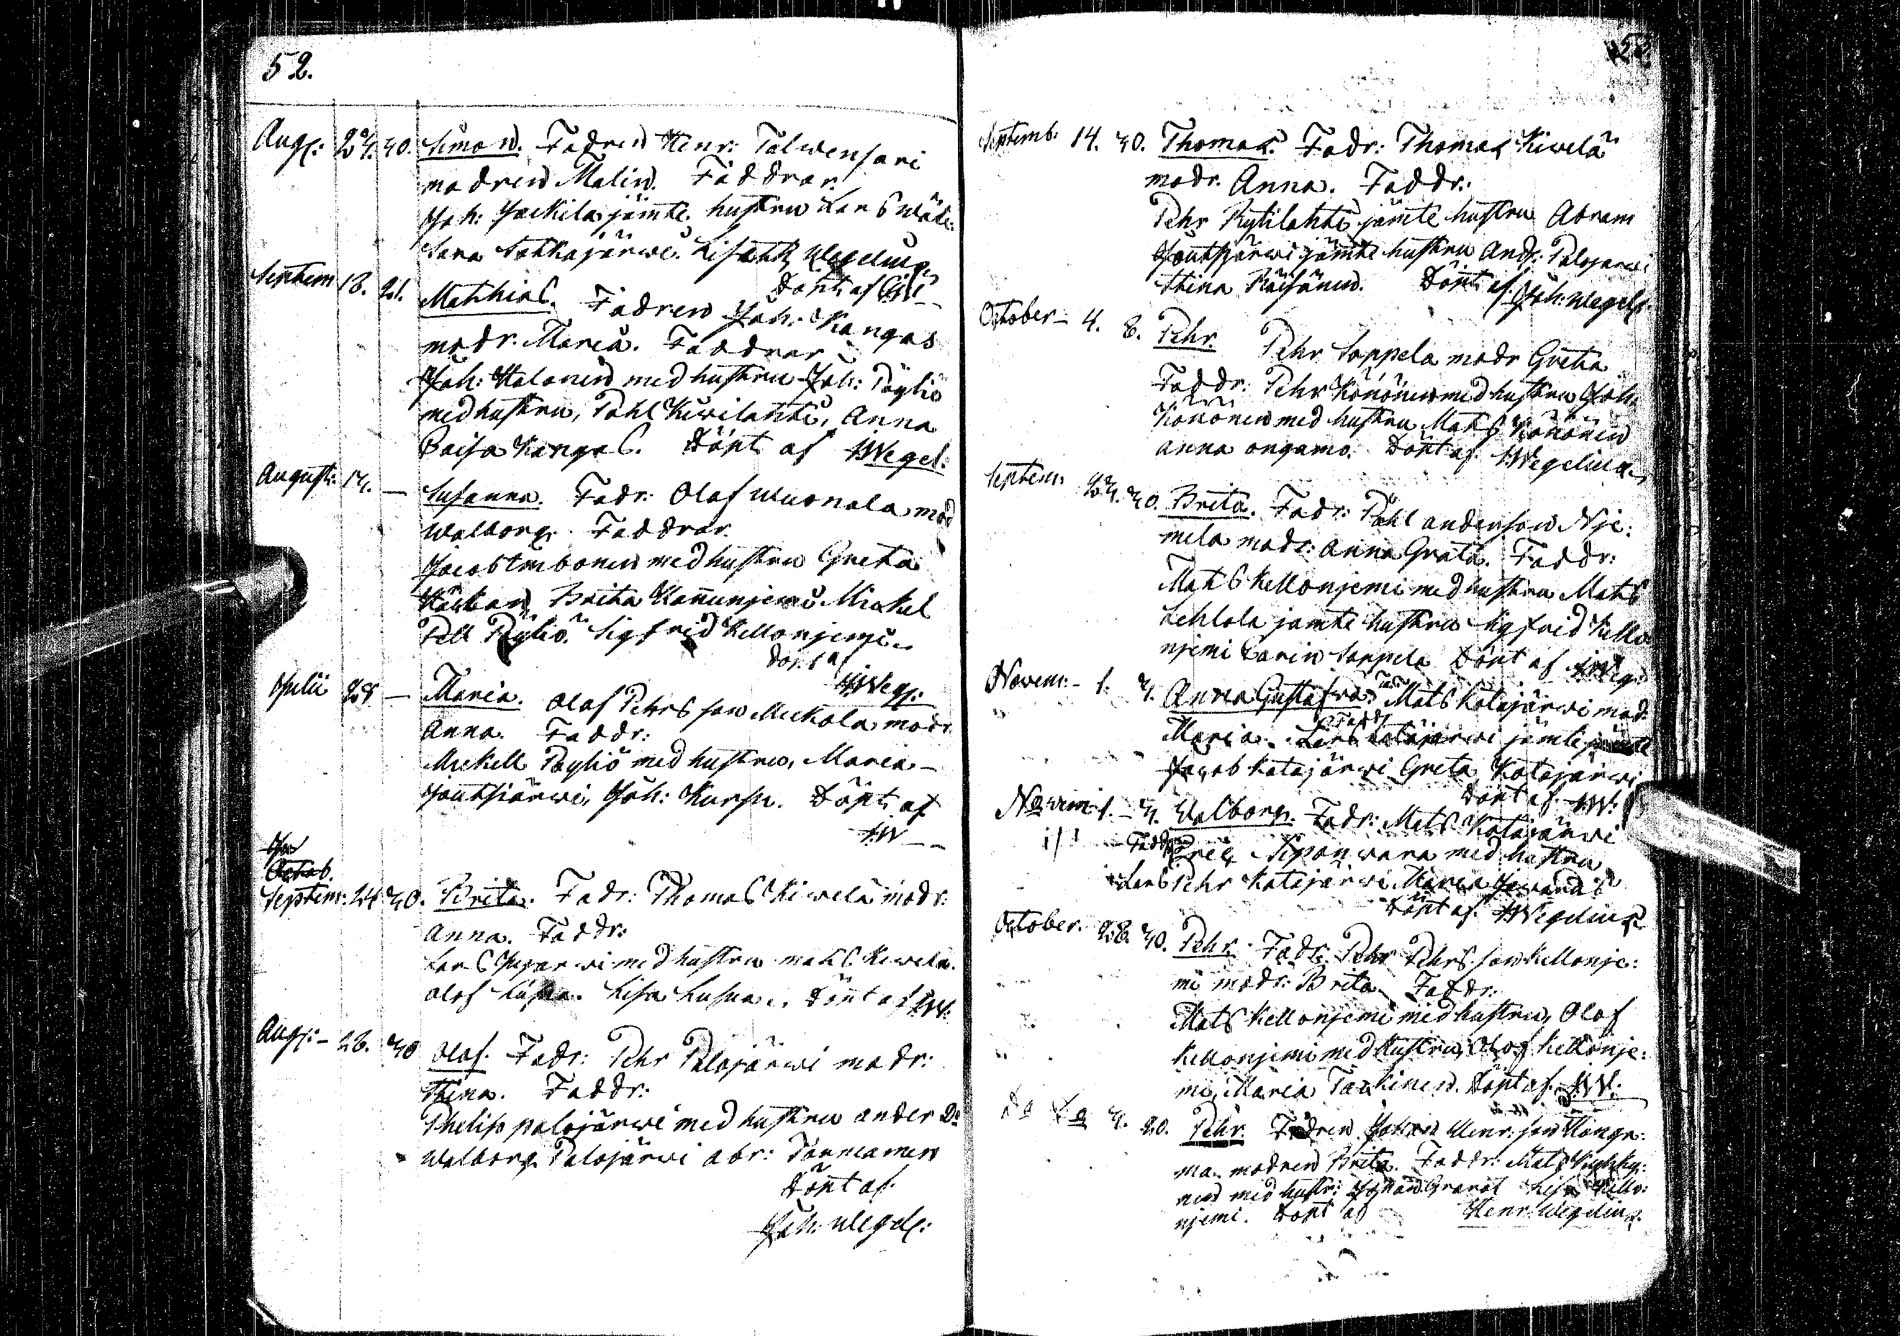 52.
Aug: 27. 30. Simon. Fadren Henr: Talwensari
madren Malin. Faddrar.
Joh: Jackila jämte hustru Lars
Sara Sakkajärwi. Lisa Wegelius
Döpt af
Septem 18. 21. Matthias. Fadren Joh: Kangas
modr. Maria. Faddrar
Joh: Kalonen med hustru Joh: Pöyliö
med hustru, Påhl Kiwilahti, Anna
Caisa Kangas. Döpt af HWegel:
August: 17. — Susanna. Fadr: Olof Wuonala mod
Walborg. Faddrar.
Jacob Imbonen med hustru Greta
Brita Kannunjemi Mickel
Pell Pöyliö. Sigfrid Kellonjemi
Döpt af
HWeg:
Julii 28 — Maria. Olof Pehrsson Mickola modr
Anna. Faddr:
Mickell Pöyliö med hustru, Maria
Joutsiärwi, Joh: Kursu. Döpt af
HW
Octob.
Septem: 24 30. Brita. Fadr: Thomas Kiwelä modr:
Anna. Faddr:
Lars med hustru Mats Kiwelä.
Olof Lisa Döpt af HW:
Aug: – 26. 30 Olof. Fadr: Pehr Palojärwi modr:
Stina. Faddr:
Philip palojärwi med hustru ander Do
Walborg Palojärwi abr:
Döpt af
Joh: Wegel:
52
Septemb: 14. 30. Thomas. Fadr: Thomas Kiwelä
modr. Anna. Faddr:
Pehr Kytilahti jämte hustru Abram
Joutsjärwi jämte hustru And: Palojärwi
Stina Räisänen. Döpt af Joh: Wegel:
October – 4. 8. Pehr. Pehr Soppela modr Greta
Faddr: Pehr Könönen med hustru Joh.
Könönen med hustru Mats Könönen
Anna ongamo. Döpt af HWegelius
Septem: 27. 30. Brita. Fadr: Påhl anderson Nje:
mela modr: Anna Greta. Faddr:
Mats Kellonjemi med hustru Mats
Lehtola jämte hustru Sigfrid Kello
njemi Carin Soppela Döpt af HWeg:
Novem: – 1. 7. Anna Gustafwa. Mats Katajärwi mod:
Maria. Faddr Lars Katajärwi jämte
Jacob Katajärwi Greta Katajärwi
Döpt af HW:
Novem 1. – 7. Walborg. Fadr: Mats Katajärwi
Faddr Eric Siponwara med hustru
Lars Pehr Katajärwi Maria
Döpt af HWegelius
October. 28. 30. Pehr. Fadr: Pehr Pehrsson Kellonje:
mi modr: Brita. Faddr:
Mats Kellonjemi med hustru, Olof
Kellonjemi med hustru, Olof Kellonje:
mi, Maria Tarkinen. Döpt af HW.
do do 7. 20. Pehr. Fadren Johan Henr:son
ma. modren Brita. Faddr: Mats
nen med hustr: Johan Granat Lisa Kello:
njemi. Döpt af Henr: Wegelius.